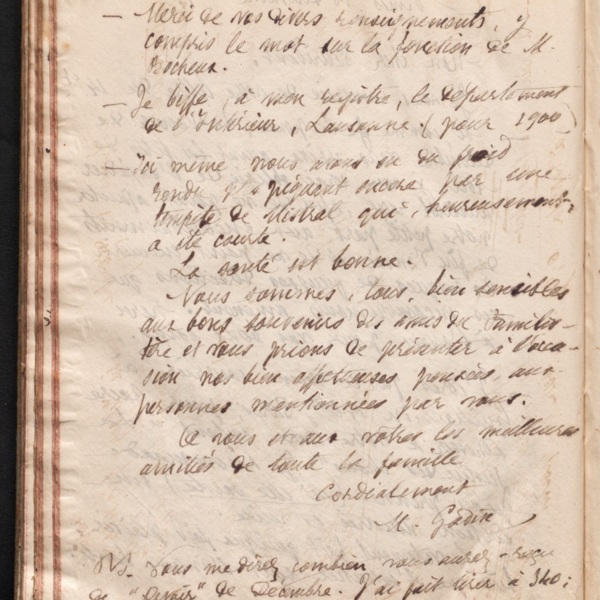 — Merci de vos divers renseignements, y
compris le mot sur la fonction de M.
Bocheux.
— Je biffe, à mon registre, le département
de l'Intérieur, Lausanne. (pour 1900)
— Ici même nous avons eu du froid
rendu plus piquant encore par une
tempête de Mistral qui, heureusement,
a été courte.
La santé est bonne.
Nous sommes, tous, bien sensibles
aux bons souvenirs des amis du Familis-
tère et vous prions de présenter à l'occa-
sion nos bien affectueuses pensées, aux
personnes mentionnées par vous.
A vous et aux vôtres les meilleures
amitiés de toute la famille
Cordialement
M. Godin
P.S. Vous me direz combien vous aurez reçu
de "Devoir" de Décembre. J'ai fait tirer à 340 ;